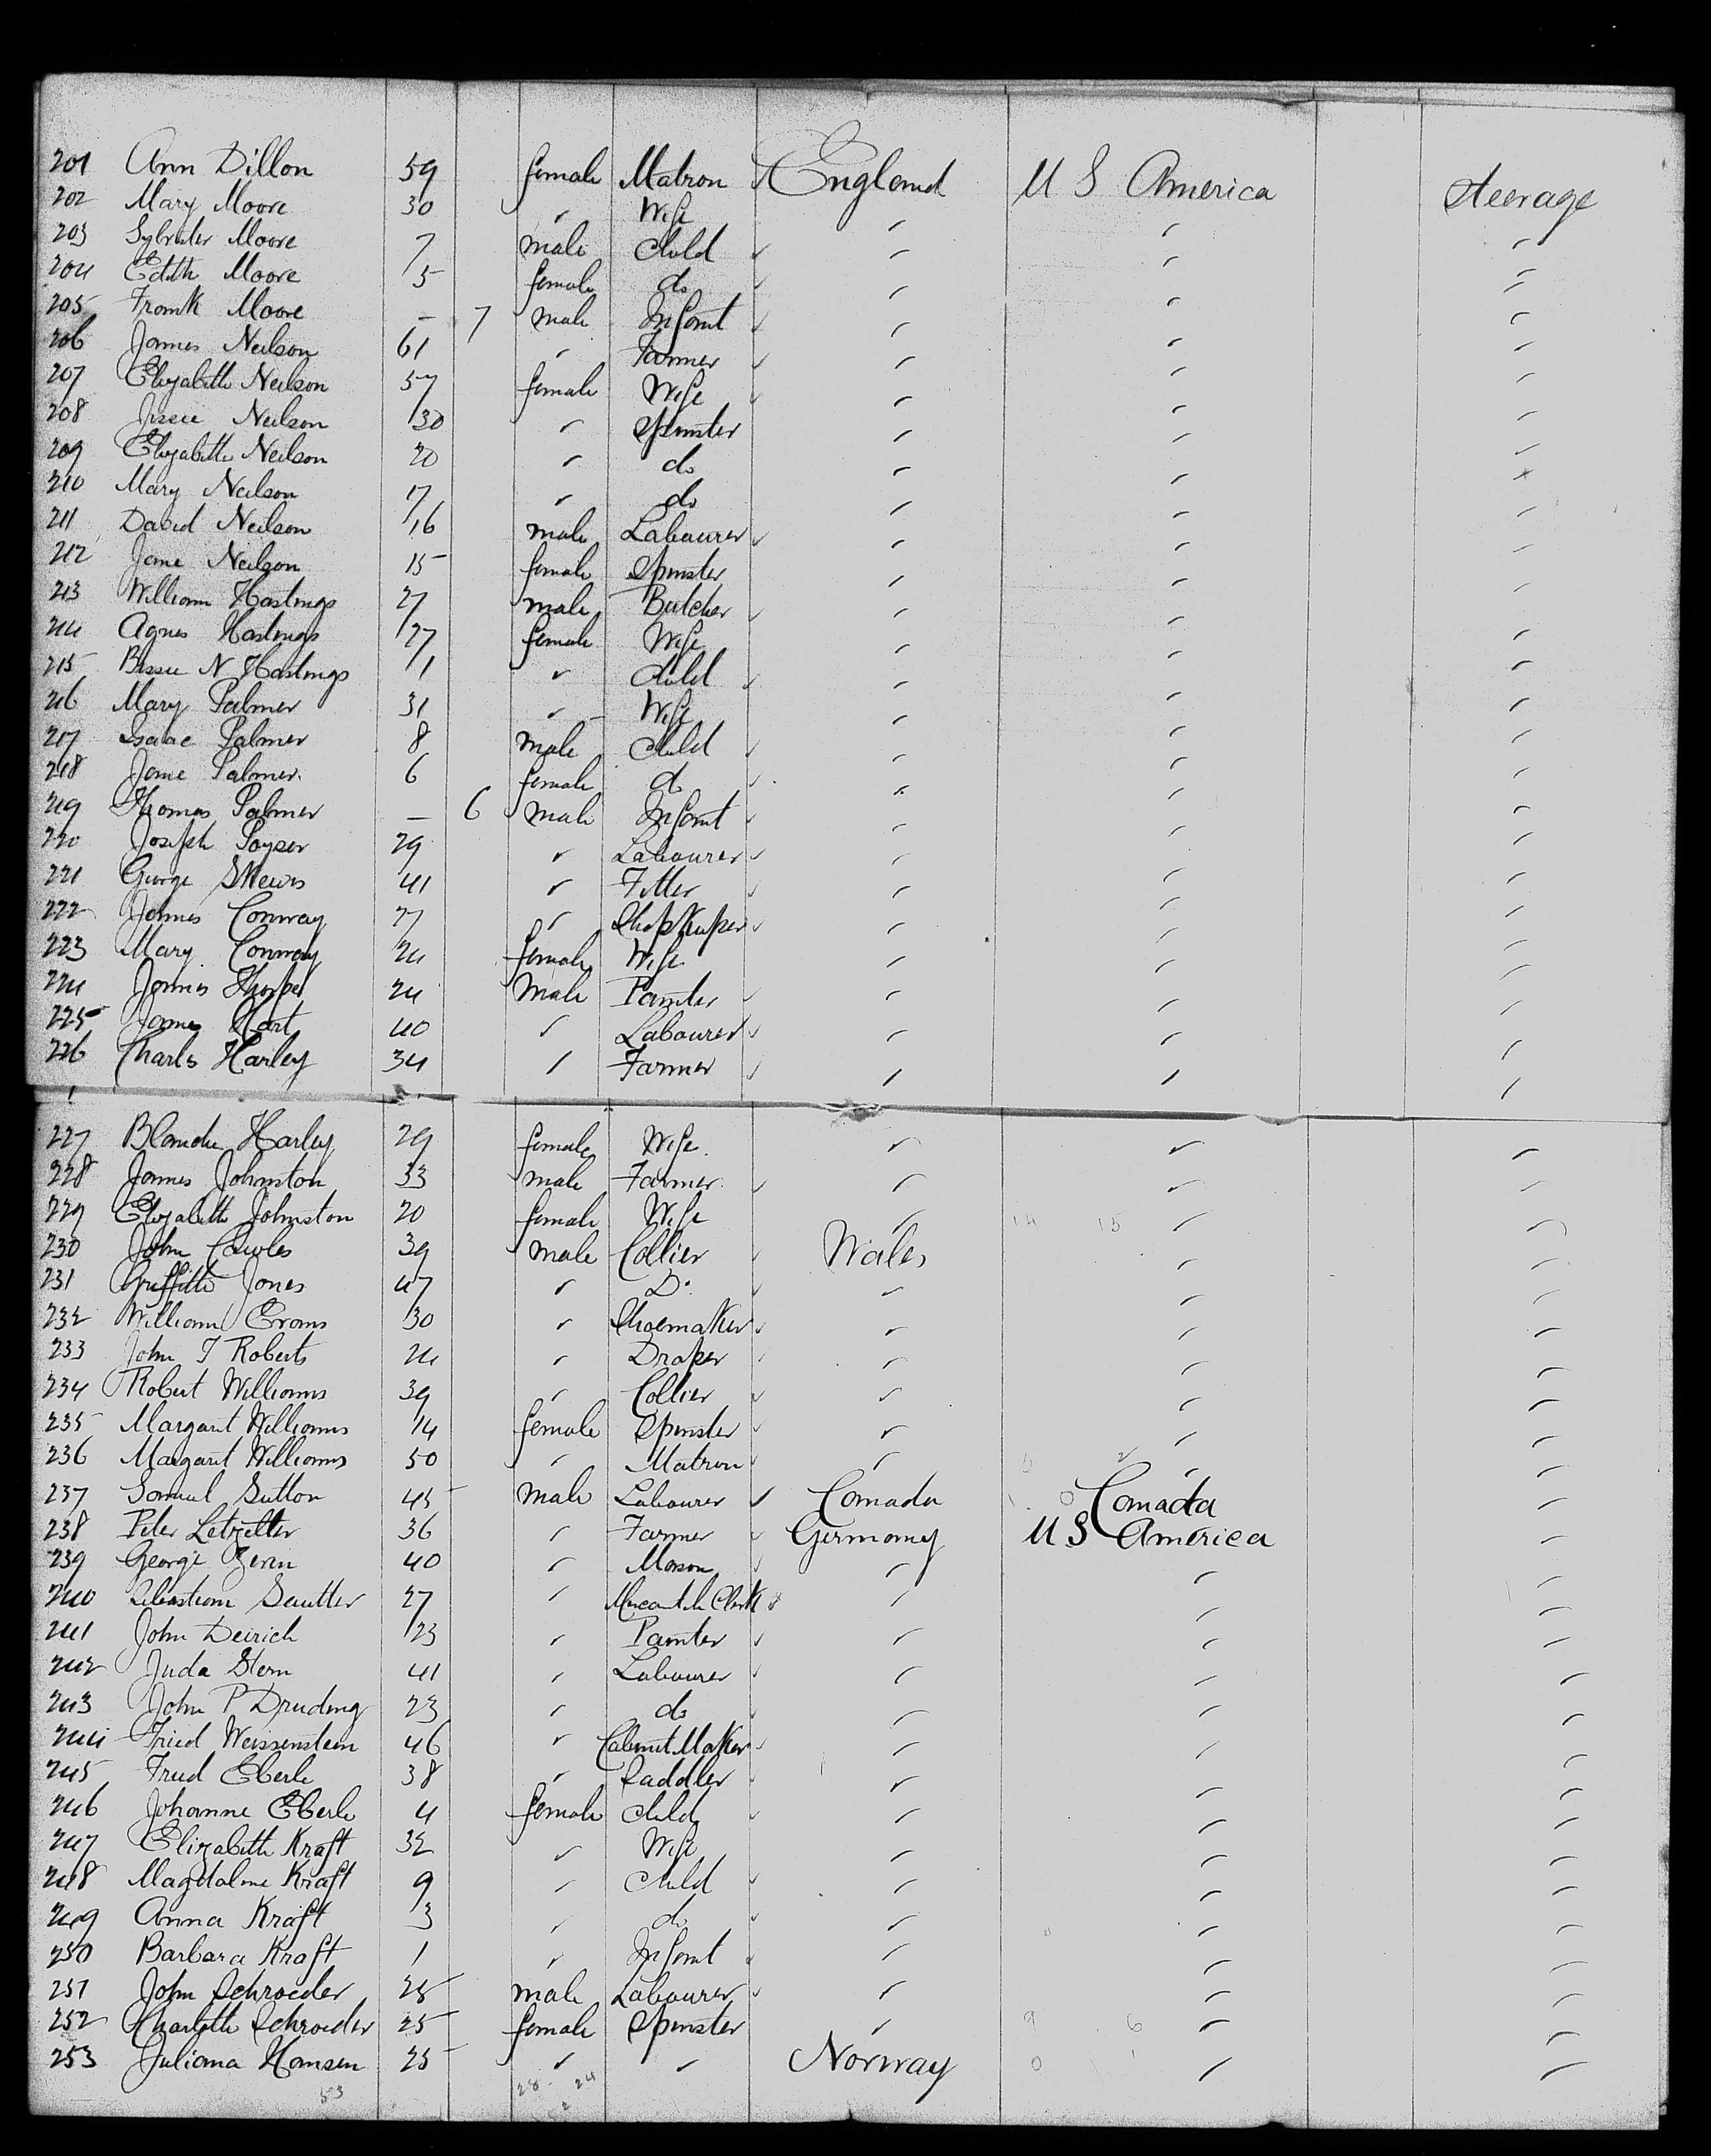 201 Ann Dillon 59 female Matron England U S America Steerage
202 Mary Moore 30 " Wife " " "
203 Sylvester Moore 7 male Child " " "
204 Edith Moore 5 female do " " "
205 Frank Moore - 7 male Infant " " "
206 James Neilson 61 " Farmer " " "
207 Elizabeth Neilson 57 female Wife " " "
208 Jessie Neilson 30 " Spinster " " "
209 Elizabeth Neilson 20 " do " " "
210 Mary Neilson 17 " do " " "
211 David Neilson 16 male Labourer " " "
212 Jane Neilson 15 female Spinster " " "
213 William Hastings 27 male Butcher " " "
214 Agnes Hastings 27 female Wife " " "
215 Bessie N Hastings 1 " Child " " "
216 Mary Palmer 31 " Wife " " "
217 Isaac Palmer 8 male Child " " "
218 Jane Palmer 6 female do " " "
219 Thomas Palmer - 6 male Infant " " "
220 Joseph Poyser 29 " Labourer " " "
221 George 41 " Fitter " " "
222 James Conway 27 " Shopkeeper " " "
223 Mary Conway 24 female Wife " " "
224 James Thorpe 24 Male Painter " " "
225 James Hart 40 " Labourer " " "
226 Charles Harley 34 " Farmer " " "
227 Blanche Harley 29 female Wife " " "
228 James Johnston 33 male Farmer " " "
229 Elizabeth Johnston 20 female Wife " " "
230 John Cowles 39 male Collier Wales " "
231 Griffith Jones 47 " Do " " "
232 William Evans 30 " Shoemaker " " "
233 John T Roberts 24 " Draper " " "
234 Robert Williams 39 " Collier " " "
235 Margaret Williams 14 female Spinster " " "
236 Margaret Williams 50 " Matron " " "
237 Samuel Sutton 45 male Labourer Canada Canada "
238 Peter Letzelter 36 " Farmer Germany U S America "
239 George Zenn 40 " Mason " " "
240 Sebastian Sautter 27 " Mercantile Clerk " " "
241 John Deirich 23 " Painter " " "
242 Juda Stern 41 " Labourer " " "
243 John P Druding 23 " do " " "
244 Fried Weissenstein 46 " Cabinet Maker " " "
245 Fried Eberle 38 " Saddler " " "
246 Johanne Eberle 4 female Child " " "
247 Elizabeth Kraft 32 " Wife " " "
248 Magdalene Kraft 9 " Child " " "
249 Anna Kraft 3 " do " " "
250 Barbara Kraft 1 " Infant " " "
251 John Schroeder 25 male Labourer " " "
252 Charlotte Schroeder 25 female Spinster " " "
253 Juliana Hansen 25 " " Norway " "